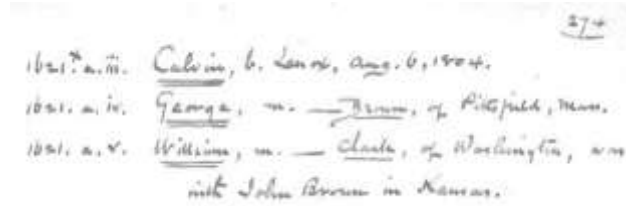 274
1621.* a. iii. Calvin, b. Lenox, Aug. 6, 1804.
1621. a. iv. George, m. — Brown, of Pittsfield, Mass.
1621. a. v. William, m. — Clark, of Washington, was
with John Brown in Kansas.